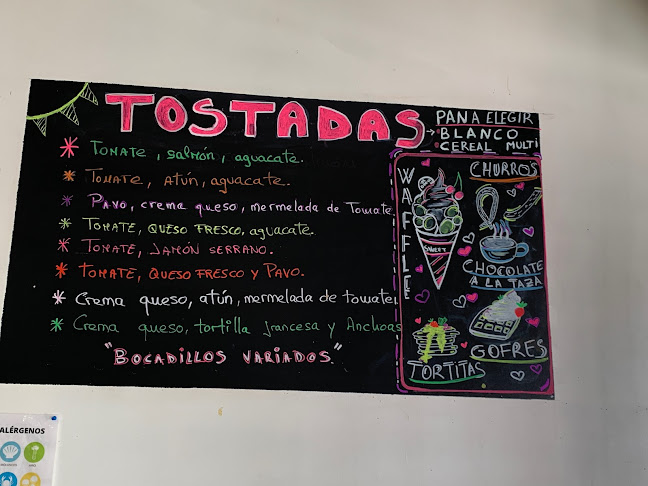 TOSTADAS
PAN A ELEGIR
BLANCO
CEREAL MULTI
* TOMATE, salmón, aguacate.
* TOMATE, ATÚN, aguacate.
* PAVO, crema queso, mermelada de Tomate.
* TOMATE, QUESO FRESCO, aguacate.
* TOMATE, JAMÓN SERRANO.
* TOMATE, QUESO FRESCO y PAVO.
* Crema queso, atún, mermelada de tomate.
* Crema queso, tortilla francesa y Anchoas
"BOCADILLOS VARIADOS"
WAFFLE
SWEET
CHURROS
CHOCOLATE
A LA TAZA
GOFRES
TORTITAS
ALÉRGENOS